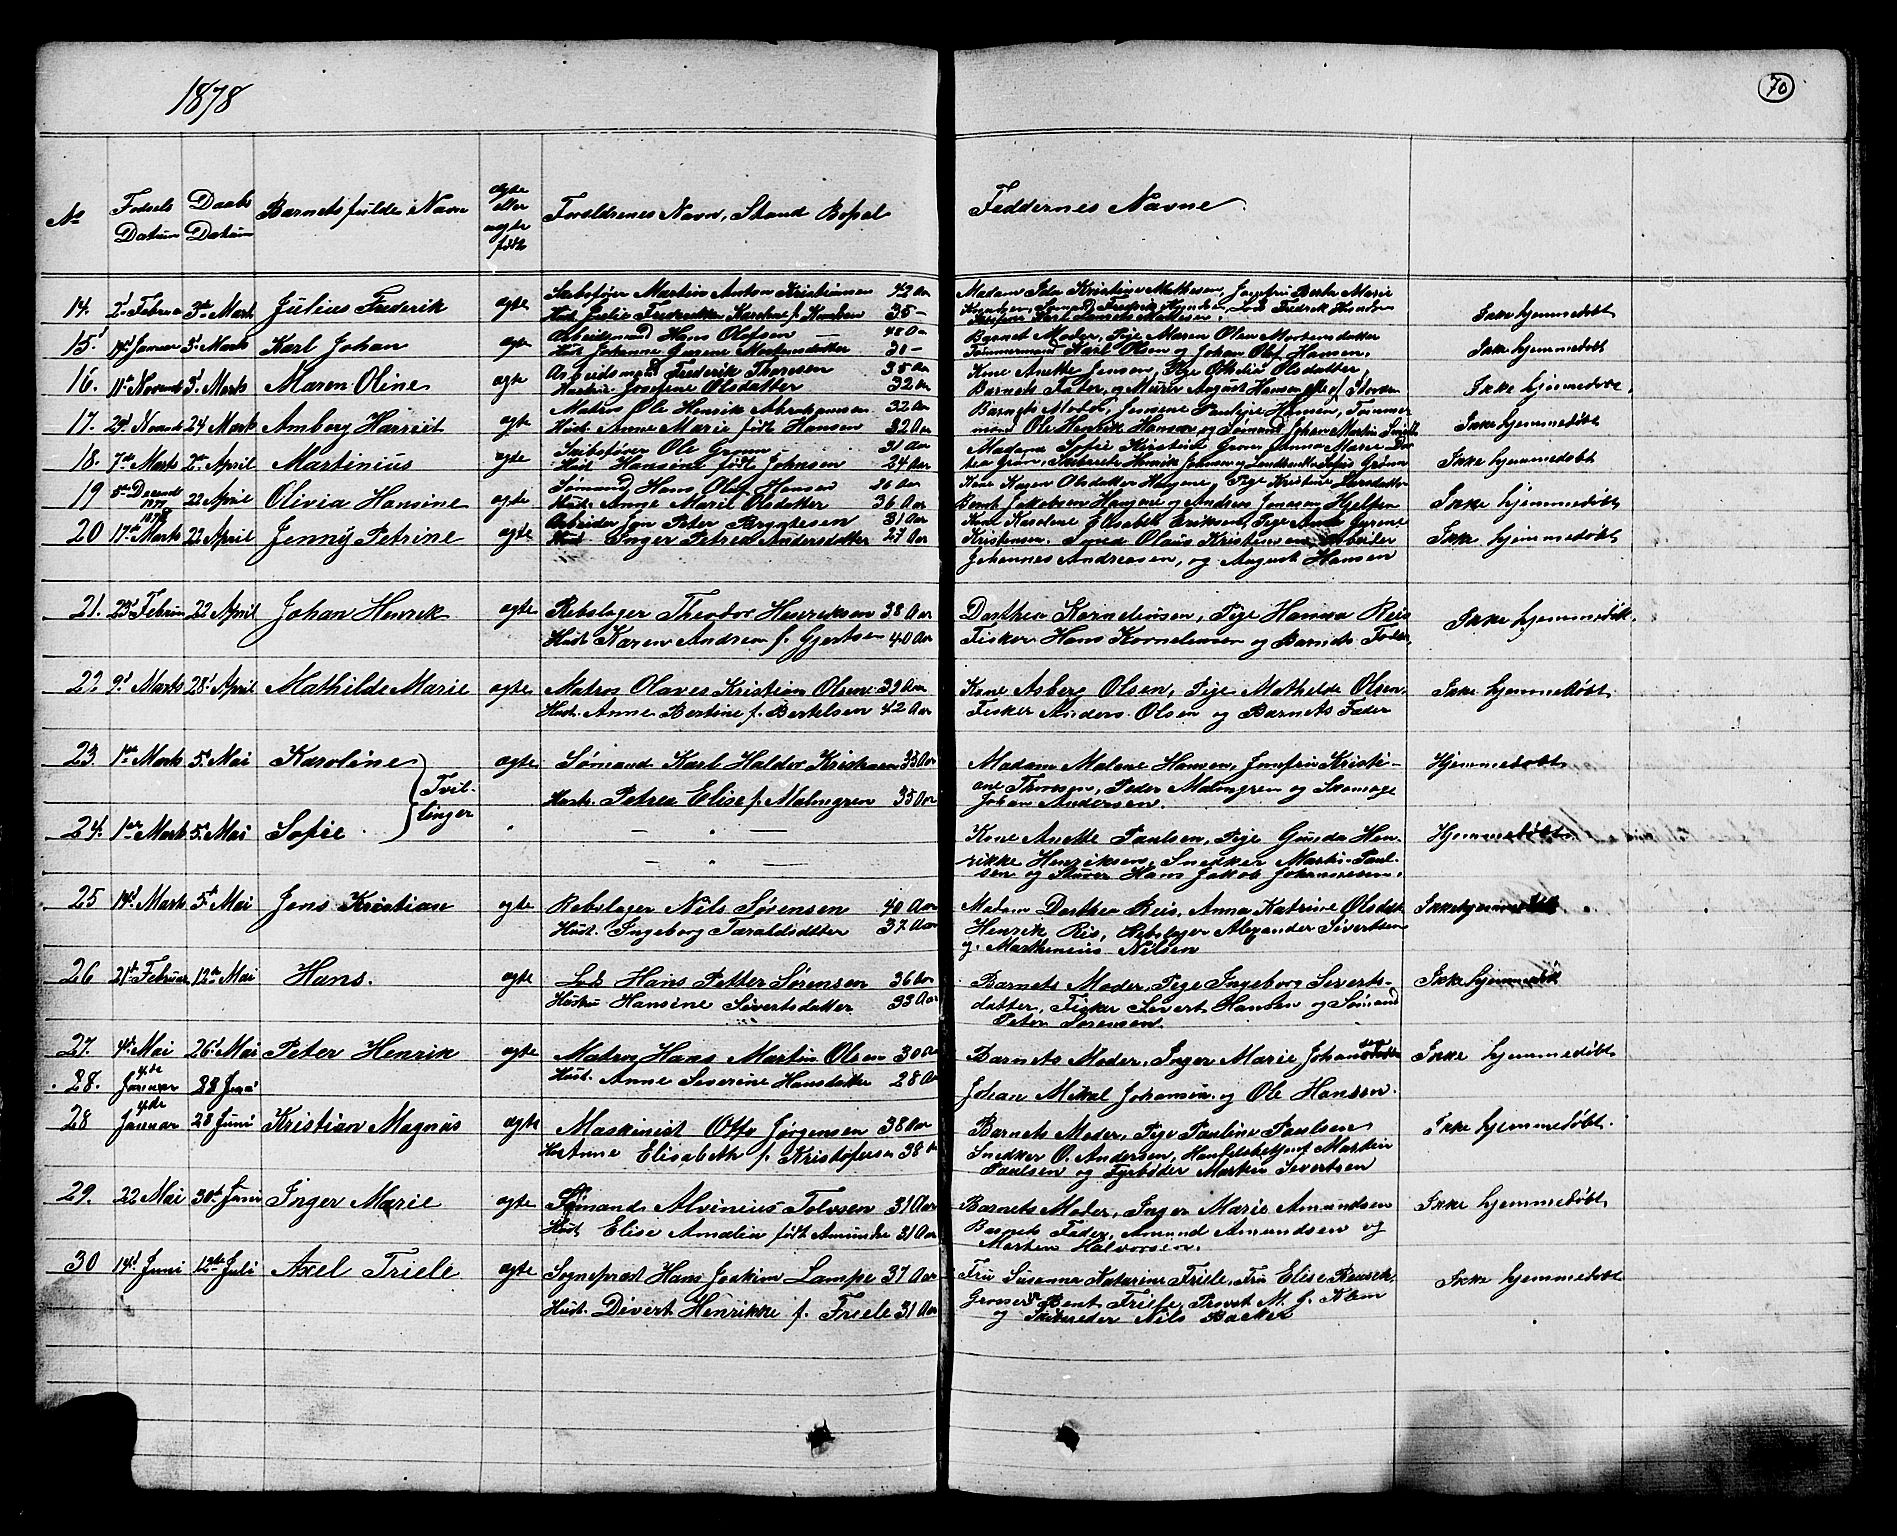 1878
70
No
Fødsels Datum
Daabs Datum
Barnets fulde Navn
ægte eller uægte født
Forældrenes Navn, Stand Bopæl
Faddernes Navne
14. 2' Februar 3die Marts Julius Frederik ægte Skibsfører Martin Anton Kristiansen 42 Aar
Hust. Julie Fredrikke Karoline f. Knudsen 35 —
Madam Ida Kristine Mathisen, Jomfru Berte Marie
Ikke hjemmedøbt
15. 14' Januar 3' Marts Karl Johan ægte Arbeidsmand Hans Olofsen 48 Aar
Hust. Johanne Gurene Mortensdatter 30 —
Barnets Moder, Pige Maren Oline Mortensdatter
Tømmermand Karl Olsen og Johan Olof Hansen,
Ikke hjemmedøbt
16. 11te Novemb 3' Marts Maren Oline ægte Arbeidsmand Frederik Thoresen 35 Aar
Hustru Josefine Olsdatter 32 Aar
Kone Anette Jensen, Pige Othilie Olsdatter,
Barnets Fader, og Murer August Hansen
Ikke hjemmedøbt
17. 29' Novemb 24 Marts Amborg Harriet ægte Matros Ole Henrik Abrahamsen 32 Aar
Hust. Anne Marie født Hansen 32 Aar
Barnets Moder, Jensene Pauline Hansen, Tømmer
mand Ole Henrik Hansen og Sømand Johan Martin Smidt
Ikke hjemmedøbt
18. 7de Marts 2den April Martinius ægte Skibsfører Ole Grønn 31 Aar
Hust. Hansine født Johnsen 24 Aar
Madame Sofie Kristine Grøn, Janna Marie Dor
thea Grøn, Skibsreder Henrik Johnsen og Sofus Grønn
Ikke hjemmedøbt
19 5te Decemb 1877 22 April Olivia Hansine ægte Sømand Hans Olaf Hansen 36 Aar
Hust. Anne Marie Olsdatter 36 Aar
Kone Karen Olsdatter Haugene, Pige Kristine Larsdatter
Bernt Jakobsen Haugene og Anders Jonsen Hjelpen
Ikke hjemmedøbt
20 1878 17de Marts 22 April Jenny Petrine ægte Arbeider Jon Peter Bryntesen 31 Aar
Hust. Inger Petrea Andersdatter 27 Aar
Kone Karoline Elisabeth Eriksen, Pige Anna Gurene
Kristensen. Smed Olaus Kristensen, Arbeider
Johannes Andreasen, og August Hansen
Ikke hjemmedøbt
21. 23' Februar 22 April Johan Henrik ægte Rebslager Theodor Henriksen 38 Aar
Hust Karen Andrea f. Gjertsen 40 Aar
Dorthea Korneliusen, Pige Hanna Reis
Fisker Hans Korneliusen og Barnets Fader,
Ikke hjemmedøbt.
22 9' Marts 28' April Mathilde Marie ægte Matros Olaves Kristian Olsen 39 Aar
Hust. Anne Bertine f. Bertelsen 42 Aar
Kone Asberg Olsen, Pige Mathilde Olsen,
Fisker Anders Olsen og Barnets Fader
Ikke hjemmedøbt
23. 1ste Marts 5te Mai Karoline Tvil-
linger ægte Sømand Karl Haldor Kristiansen 33 Aar
Hust. Petrea Elise f. Malmgren 35 Aar
Madam Malene Hansen, Jomfru Kristi-
ane Thoresen, Peder Malmgren og Skomager
Johan Andersen.
Hjemmedøbt
24. 1ste Marts 5te Mai Sofie — " —
— " —
Kone Anette Paulsen, Pige Gunda Hen-
rikke Henriksen, Snekker Martin Paul-
sen og Stuver Hans Jakob Johannesen.
Hjemmedøbt
25 14' Marts 5te Mai Jens Kristian ægte Rebslager Nils Sørensen 40 Aar
Hust. Ingeborg Taraldsdatter 37 Aar
Madam Dorthea Reis, Anna Katrine Olsdatt
Henrik Ris, Rebslager Alexander Sivertsen
og Marthinius Nilsen
Ikke hjemmedøbt
26 21de Februar 12te Mai Hans. ægte Lods Hans Petter Sørensen 36 Aar
Hustru Hansine Sivertsdatter 33 Aar
Barnets Moder, Pige Ingeborg Siverts-
datter, Fisker Sivert Hansen og Sømand
Peter Sørensen.
Ikke hjemmedøbt
27. 4de Mai 26' Mai Peter Henrik ægte Matros Hans Martin Olsen 30 Aar
Hust. Anne Severine Hansdatter 28 Aar
Barnets Moder, Inger Marie Johansdatter
Johan Mikal Johansen. og Ole Hansen.
Ikke hjemmedøbt
28. 4de Januar 28 Juni
28 4de Januar 28 Juni Kristian Magnus ægte Maskinist Otto Jørgensen 38 Aar
Hus Anne Elisabeth f. Kristofersen 38 Aar
Barnets Moder, Pige Pauline Paulsen
Snedker O. Andersen, Handelsbetjent Martin
Paulsen og Fyrbøder Martin Sivertsen
Ikke hjemmedøbt.
29. 22 Mai 30te Juni Inger Marie ægte Sømand Alvinius Tolvsen 31 Aar
Hust Elise Amalia født Amundsen 31 Aar
Barnets Moder, Inger Marie Amundsen
Barnets Fader, Amund Amundsen og
Morten Halvorsen.
Ikke hjemmedøbt
30 14' Juni 12te Juli Axel Friele ægte Sogneprest Hans Joakim Lampe 37 Aar
Hust. Divert Henrikke f. Friele 31 Aar
Fru Susanna Katarina Friele, Fru Elise
Grosser Bent Friele, Provst M. J. Klem
og Skibsreder Nils Backer
Ikke hjemmedøbt